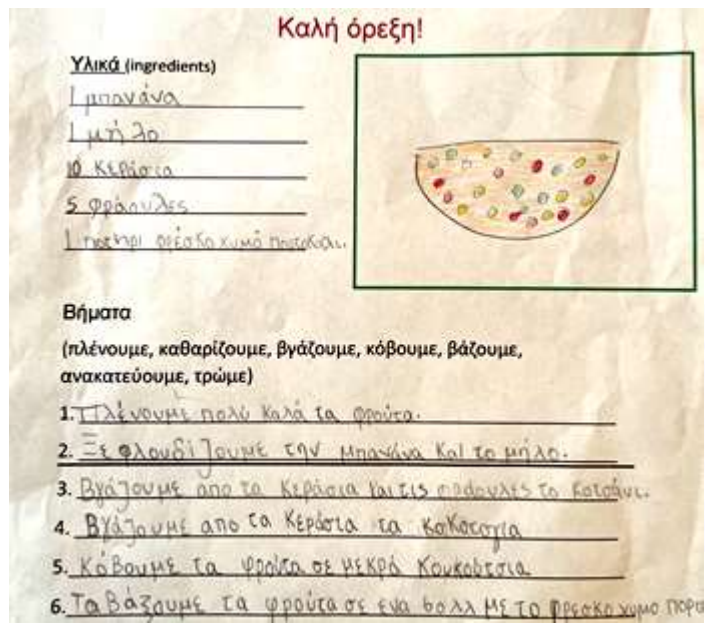 Καλή όρεξη!
Υλικά (ingredients)
1 μπανάνα
1 μήλο
10 κεράσια
5 φράουλες
1 ποτήρι φρέσκο χυμό
Βήματα
(πλένουμε, καθαρίζουμε, βγάζουμε, κόβουμε, βάζουμε,
ανακατεύουμε, τρώμε)
1. Πλένουμε πολύ καλά τα φρούτα.
2. Ξεφλουδίζουμε την μπανάνα και το μήλο.
3. Βγάζουμε απο τα κεράσια και τις φράουλες το κοτσάνι.
4. Βγάζουμε απο τα κεράσια τα
5. Κόβουμε τα φρούτα σε μεκρά κουκούτσια
6. Τα βάζουμε τα φρούτα σε ενα βολλ με το φρεσκο χυμο πορτ